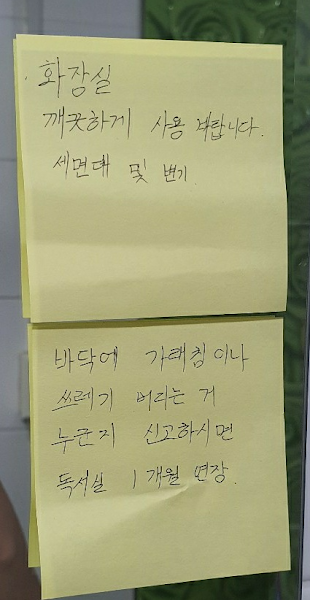 화장실
깨끗하게 사용 바랍니다.
세면대 및 변기.
바닥에 가래침이나
쓰레기 버리는 거
누군지 신고하시면
독서실 1개월 연장.